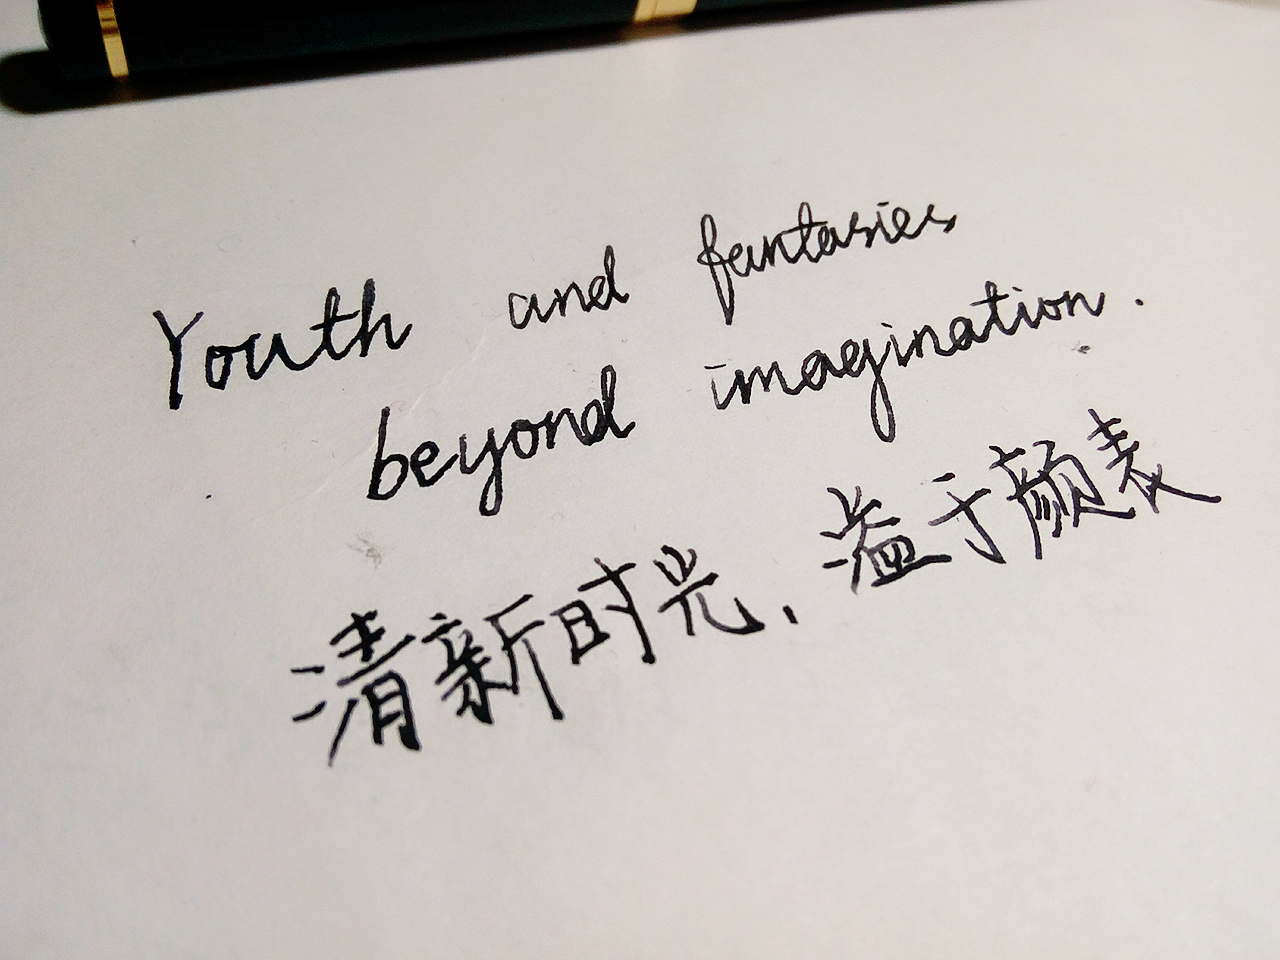 Youth and fantasies
beyond imagination.
清新时光，溢于颜表